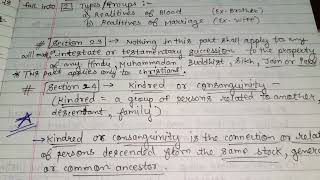 fall into 2 Types/Groups :-
a) Realitives of Blood (Ex-Brother)
b) Realitives of Marriage (Ex-Wife)
# Section 23 → Nothing in this part shall apply to any
intestate or testamentary succession to the property
of any Hindu, Muhammadan Buddhist, Sikh, Jain or
* This part applies only to Christians.
# Section 24 → Kindred or Consanguinity
(Kindred = a group of persons related to another,
descendant, family)
→ Kindred or consanguinity is the connection or
of persons descended from the same stock,
or common ancestor.